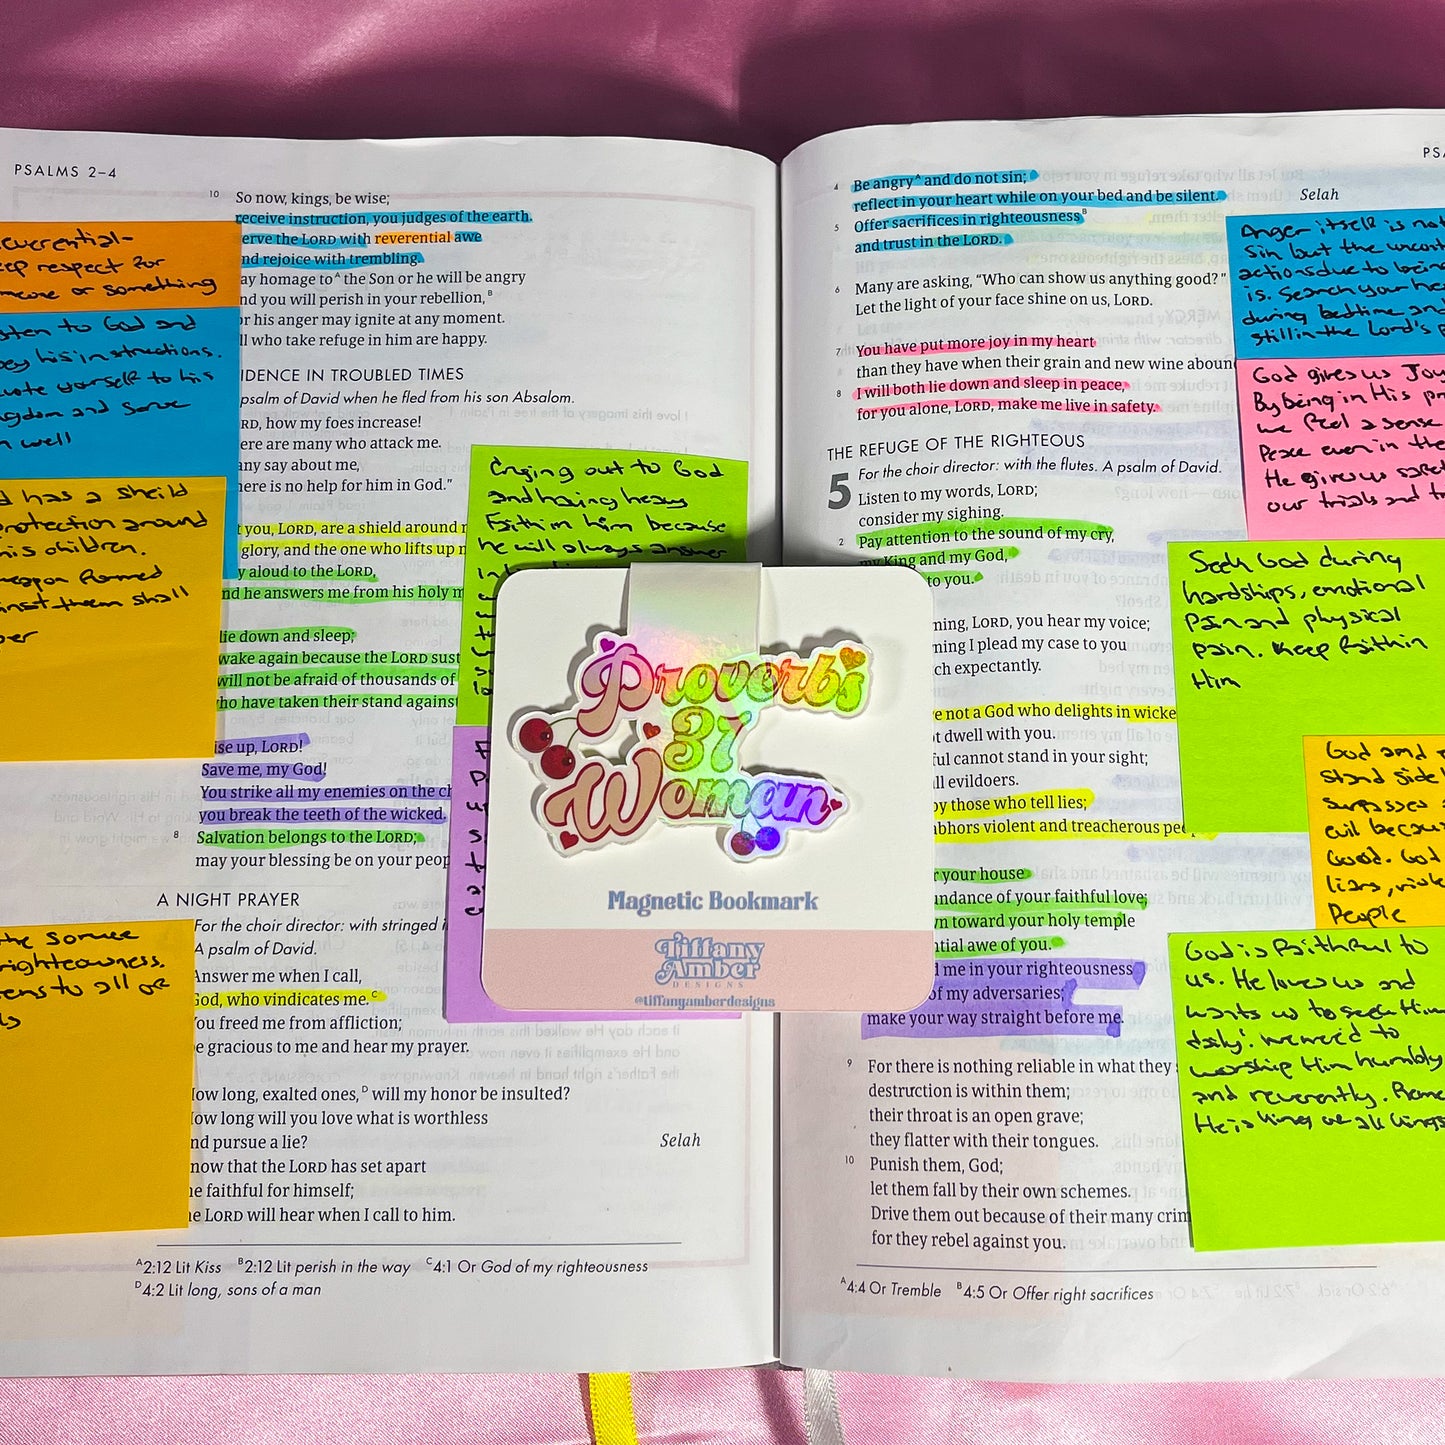 PSALMS 2–4
10 So now, kings, be wise;
receive instruction, you judges of the earth.
erve the LORD with reverential awe
nd rejoice with trembling.
ay homage to A the Son or he will be angry
nd you will perish in your rebellion, B
or his anger may ignite at any moment.
ll who take refuge in him are happy.
IDENCE IN TROUBLED TIMES
psalm of David when he fled from his son Absalom.
RD, how my foes increase!
ere are many who attack me.
any say about me,
here is no help for him in God."
t you, LORD, are a shield around m
glory, and the one who lifts up m
y aloud to the LORD,
nd he answers me from his holy m
lie down and sleep;
wake again because the LORD sust
will not be afraid of thousands of
ho have taken their stand against
ise up, LORD!
Save me, my God!
You strike all my enemies on the ch
you break the teeth of the wicked.
8 Salvation belongs to the LORD;
may your blessing be on your peop
A NIGHT PRAYER
For the choir director: with stringed i
A psalm of David.
Answer me when I call,
God, who vindicates me. C
You freed me from affliction;
e gracious to me and hear my prayer.
How long, exalted ones, D will my honor be insulted?
How long will you love what is worthless
nd pursue a lie?
Selah
now that the LORD has set apart
he faithful for himself;
he LORD will hear when I call to him.
A 2:12 Lit Kiss B 2:12 Lit perish in the way C 4:1 Or God of my righteousness
D 4:2 Lit long, sons of a man
everential-
eep respect for
meone or something
isten to God and
bey his instructions.
vote yourself to his
ngdom and serve
m well
d has a sheild
protection around
his children.
weapon formed
ainst them shall
per
the soruce
righteousness.
tens to all of
Crying out to God
and having heavy
Faith in him because
he will always answer
Proverbs
31
Woman
Magnetic Bookmark
Tiffany
Amber
DESIGNS
@tiffanyamberdesigns
PSA
4 Be angry A and do not sin;
reflect in your heart while on your bed and be silent.
Selah
5 Offer sacrifices in righteousness B
and trust in the LORD.
6 Many are asking, "Who can show us anything good?"
Let the light of your face shine on us, LORD.
7 You have put more joy in my heart
than they have when their grain and new wine aboun
8 I will both lie down and sleep in peace,
for you alone, LORD, make me live in safety.
THE REFUGE OF THE RIGHTEOUS
5 For the choir director: with the flutes. A psalm of David.
Listen to my words, LORD;
consider my sighing.
2 Pay attention to the sound of my cry,
my King and my God,
to you.
ning, LORD, you hear my voice;
ning I plead my case to you
ch expectantly.
e not a God who delights in wicke
t dwell with you.
ful cannot stand in your sight;
ll evildoers.
oy those who tell lies;
abhors violent and treacherous peo
r your house
undance of your faithful love;
wn toward your holy temple
ntial awe of you.
d me in your righteousness
of my adversaries;
make your way straight before me.
9 For there is nothing reliable in what they s
destruction is within them;
their throat is an open grave;
they flatter with their tongues.
10 Punish them, God;
let them fall by their own schemes.
Drive them out because of their many crim
for they rebel against you.
A 4:4 Or Tremble B 4:5 Or Offer right sacrifices
Anger itself is not
Sin but the uncont
actions due to being
is. Search your hea
during bedtime and
still in the Lord's p
God gives us Joy
By being in His pr
we feel a sense
Peace even in the
He gives us safet
our trials and tr
Seek God during
hardships, emotional
Pain and physical
pain. Keep faith in
Him
God and
stand side
surpasses
evil becau
Good. God
liars, viole
People
God is faithful to
us. He loves us and
wants us to seek Him
daily. We need to
worship Him humbly
and reverently. Reme
He is king of all kings